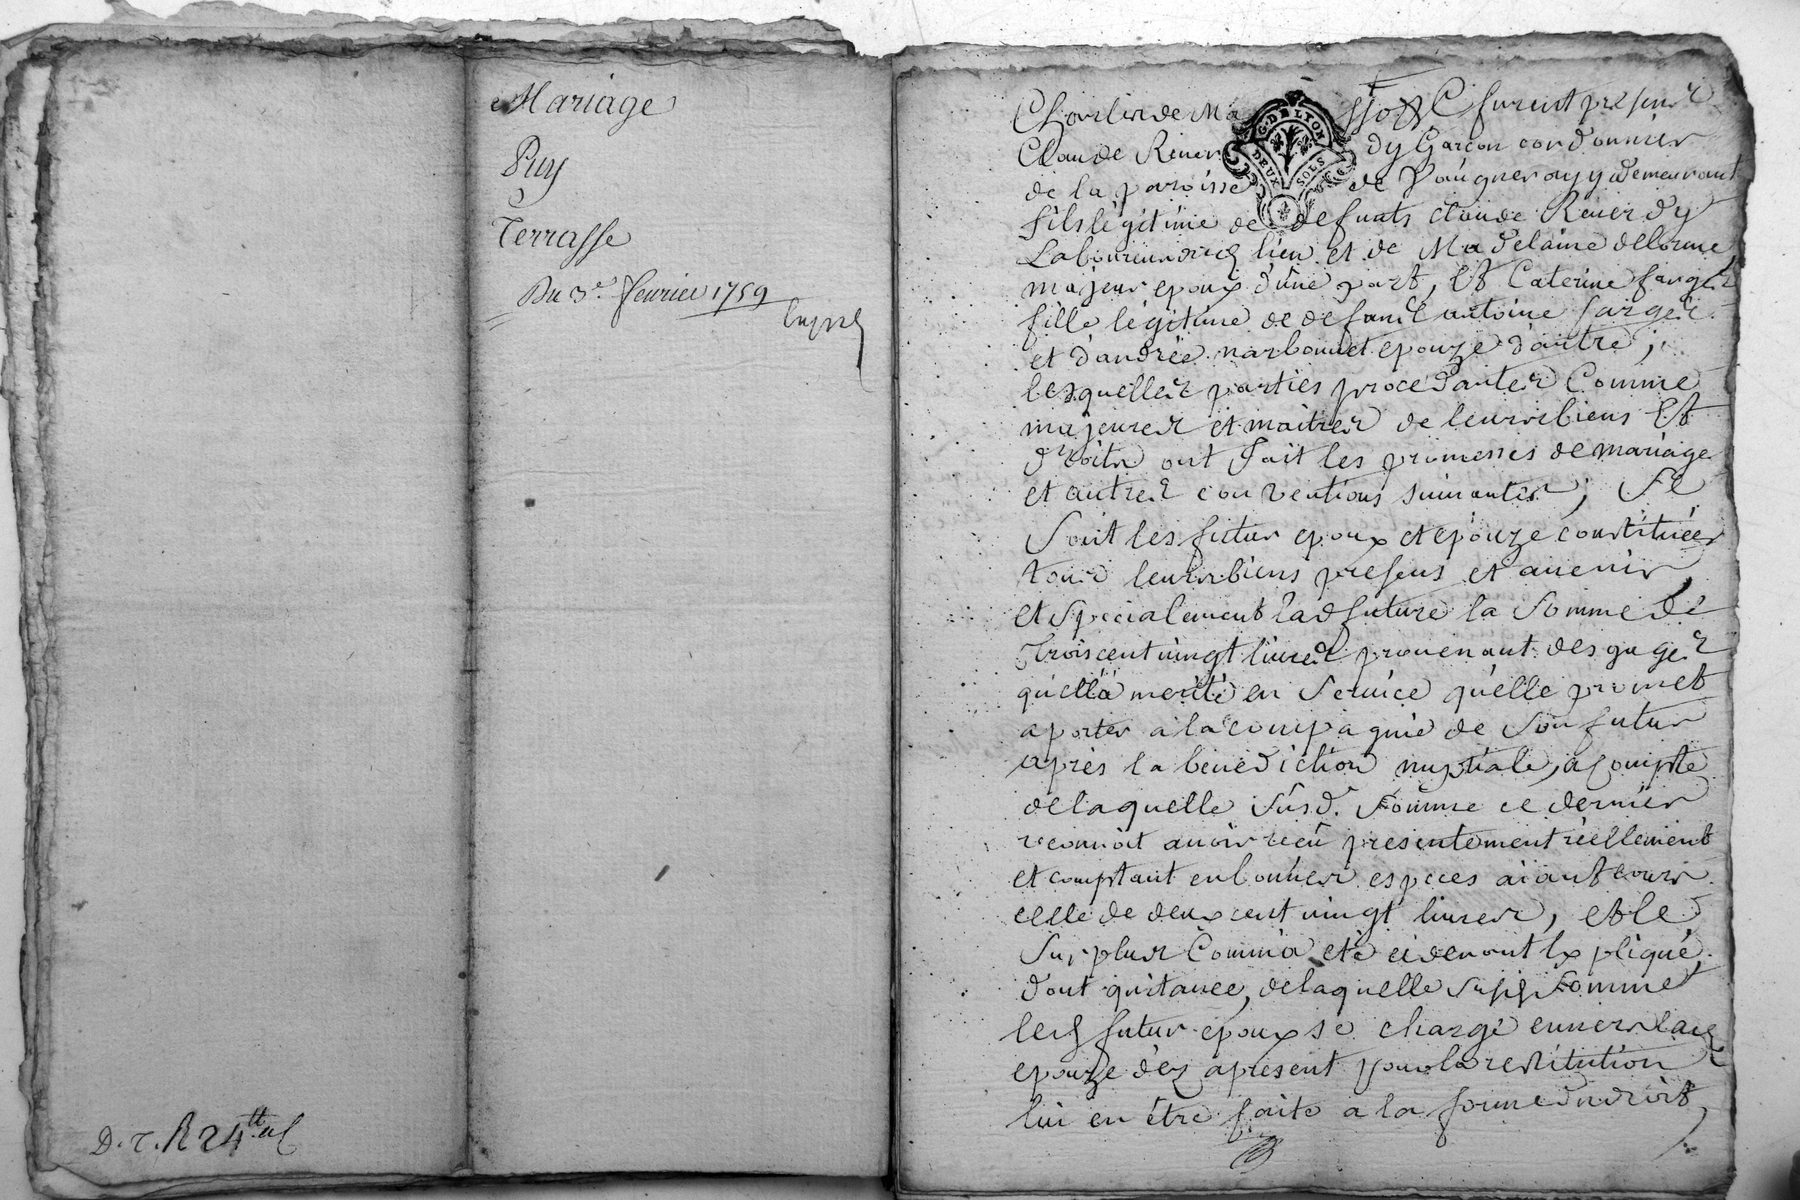 Mariage
Puy
Terrasse
Du 3.e fevrier 1759
D. T. R 24.tt
Charlin de Ma furent presens
G. DE LYON
DEUX SOLS
Claude Rever dy Garcon cordonnier
de la paroisse de Vaugneray y demeurant
fils légitime de defunts claude Reverdy
Laboureur dud lieu et de Madelaine delorme
majeur epoux d'une part, Et Caterine farges
fille légitime de defunt antoine farges
et d'andrée narbonnet epouze d'autre,
lesquelles parties procedantes Comme
majeures et maitres de leurs biens Et
droits ont fait les promesses de mariage
et autres conventions suivantes; Se
Sont les futur epoux et epouze constitués
tous leurs biens presens et avenir
et specialement lad future la Somme de
Trois cent vingt livres provenant des gages
qu'ella merité en Service qu'elle promet
aporter a la compagnie de Son futur
après la bénédiction nuptiale, a compte
de laquelle Susd. Somme ce dernier
reconnoit avoir recu presentement réellement
et comptant en bonnes especes aiant cours
celle de deux cent vingt livres, et le
Surplus Comm'a eté ci devant Expliqué,
dont quitance, de laquelle Somme
led futur epoux se charge envers lad
epouze dèz apresent pour la restitution
lui en être faite a la forme du droit,